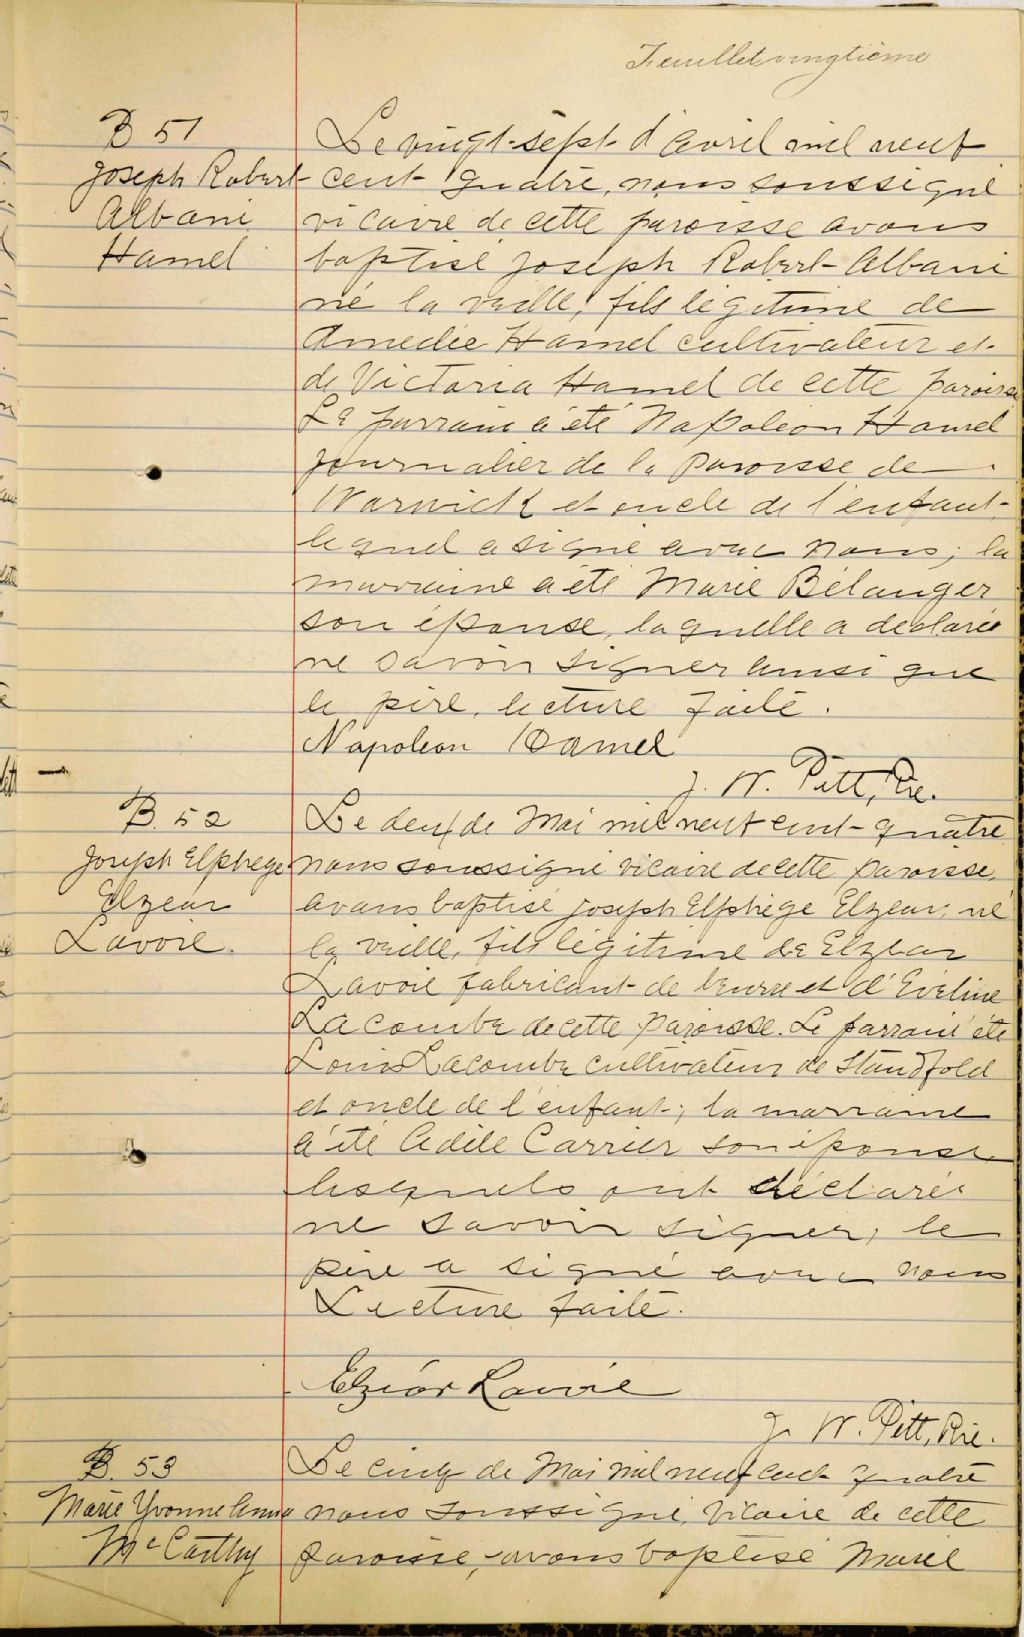 Feuillet vingtième
B 51
Joseph Robert
Albani
Hamel
Le vingt-sept d'avril mil neuf
cent quatre, nous soussigné
vicaire de cette paroisse avons
baptisé Joseph Robert Albani
né la veille, fils légitime de
Amédée Hamel cultivateur et
de Victoria Hamel de cette paroisse
Le parrain a été Napoléon Hamel
journalier de la paroisse de
Warwick et oncle de l'enfant
lequel a signé avec nous; la
marraine a été Marie Bélanger
son épouse, laquelle a déclaré
ne savoir signer ainsi que
le père, lecture faite.
Napoleon Hamel
J. W. Pitt, Ptre.
B. 52
Joseph Elphège
Elzéar
Lavoie.
Le deux de Mai mil neuf cent quatre
nous soussigné vicaire de cette paroisse,
avons baptisé Joseph Elphège Elzéar, né
la veille, fils légitime de Elzéar
Lavoie fabricant de beurre et d'Eveline
Lacombe de cette paroisse. Le parrain été
Louis Lacombe cultivateur de Standfold
et oncle de l'enfant; la marraine
a été Adèle Carrier son épouse
lesquels ont déclaré
ne savoir signer, le
père a signé avec nous
Lecture faite.
Elzéar Lavoie
J. W. Pitt, Ptre.
B. 53
Marie Yvonne Anna
McCarthy
Le cinq de Mai mil neuf cent quatre
nous soussigné, Vicaire de cette
paroisse, avons baptisé Marie